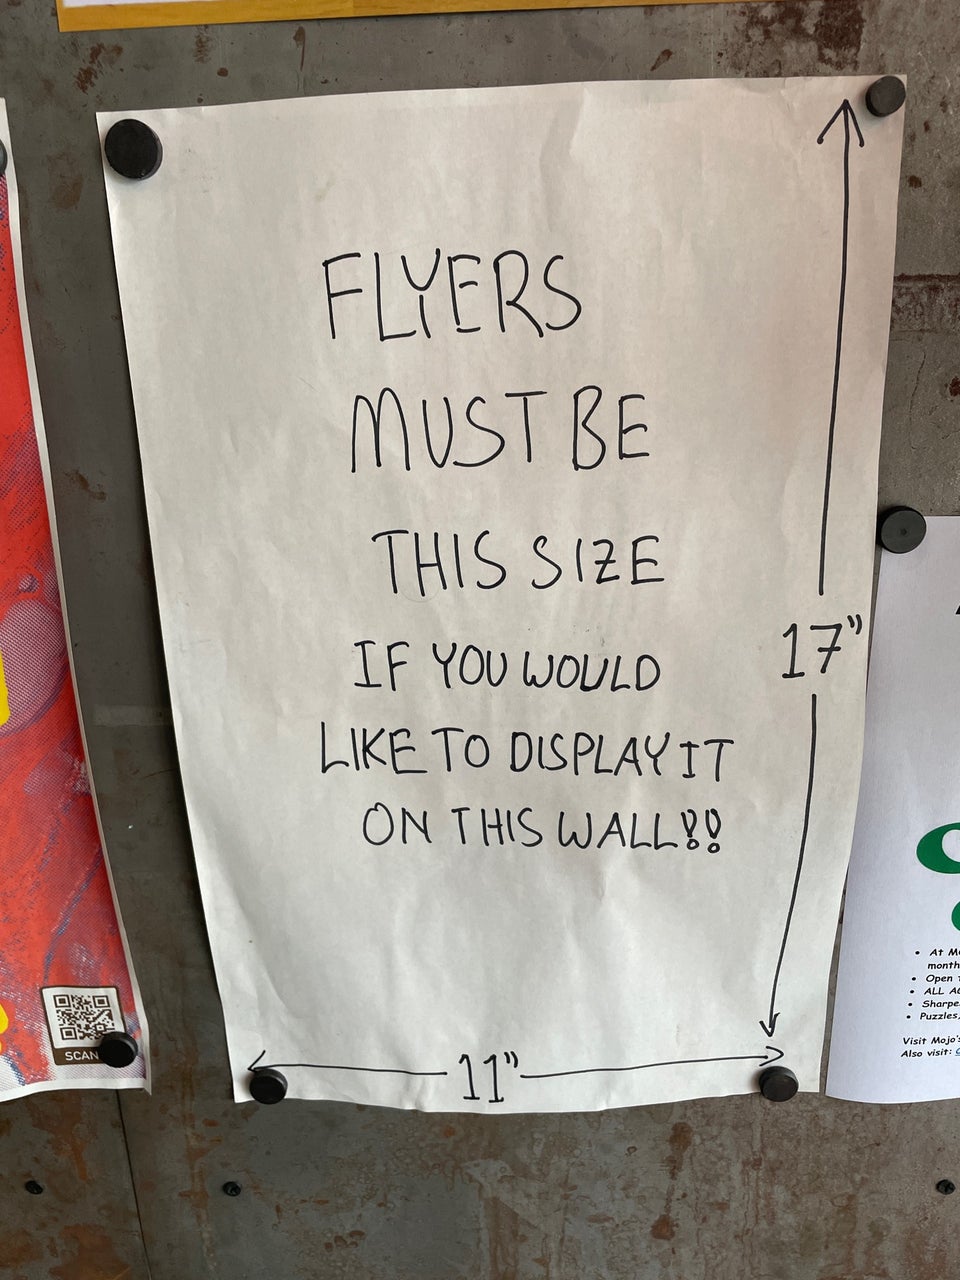 FLYERS
MUST BE
THIS SIZE
IF YOU WOULD
LIKE TO DISPLAY IT
ON THIS WALL!!
17"
11"
SCAN
• At
month
• Open
• ALL
• Sharpe
• Puzzles,
Visit Mojo's
Also visit: